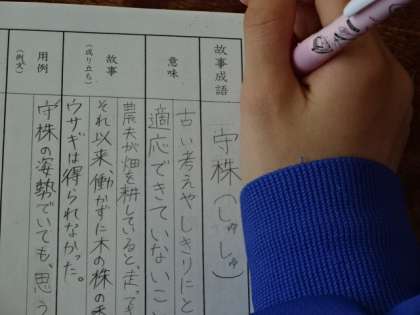 故事成語
守株(しゅしゅ)
意味
古い考えやしきりにと
適応できていないこ
故事
(成り立ち)
農夫が畑を耕していると走って
それ以来働かずに木の株の
ウサギは得られなかった。
用例
(例文)
守株の姿勢でいても、思う